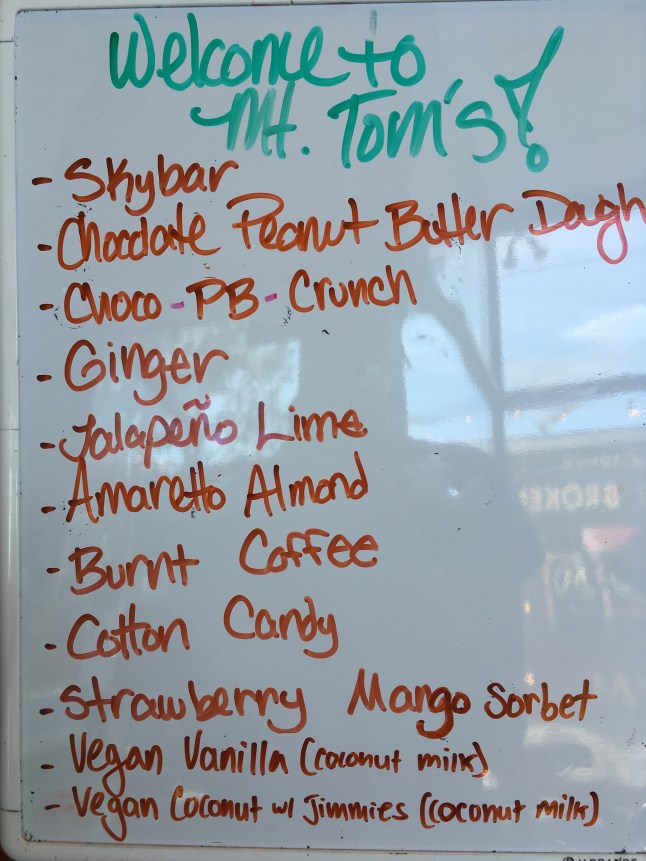 Welcome to
Mt. Tom's!
- Skybar
- Chocolate Peanut Butter
- Choco-PB-Crunch
- Ginger
- Jalapeño Lime
- Amaretto Almond
- Burnt Coffee
- Cotton Candy
- Strawberry Mango Sorbet
- Vegan Vanilla (coconut milk)
- Vegan Coconut w/ Jimmies (coconut milk)